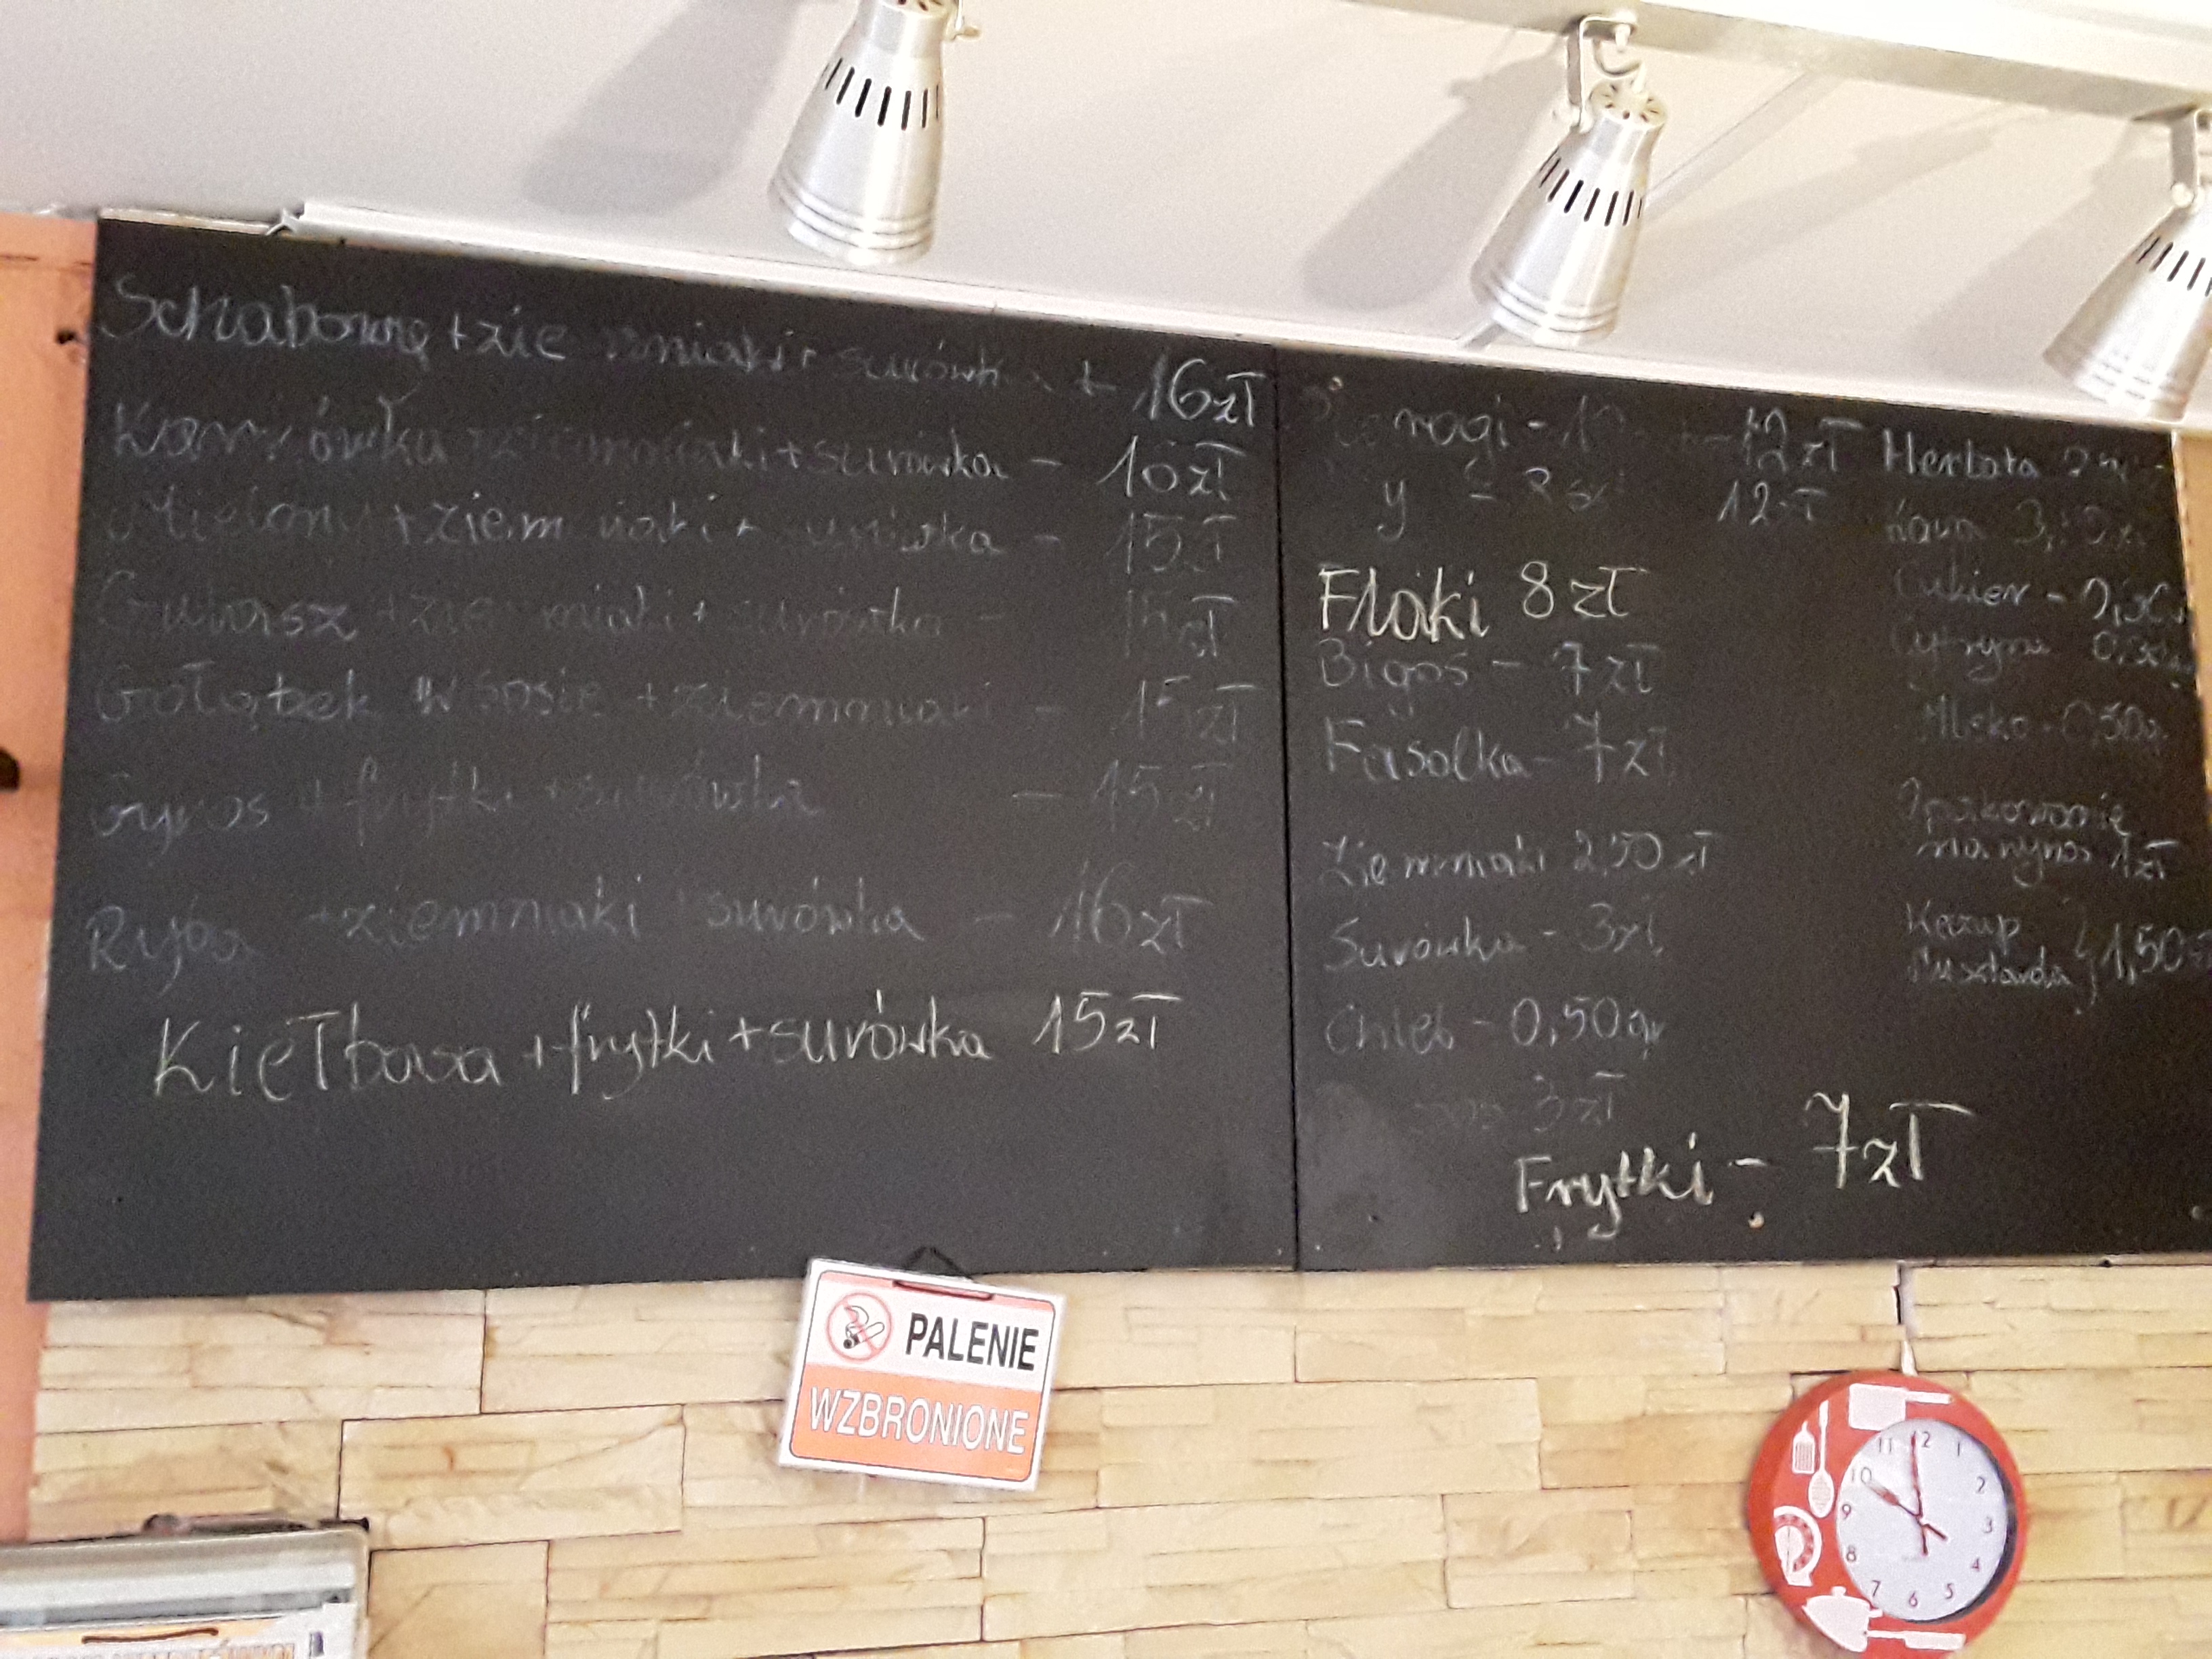 Schabowy + ziemniaki + surówka + 16zł
Karkówka + ziemniaki + surówka - 16zł
Mielony + ziemniaki + surówka - 15zł
Gulasz + ziemniaki + surówka - zł
Gołąbek w sosie + ziemniaki - 15zł
Gyros + frytki + surówka - 15zł
Ryba + ziemniaki + surówka - 16zł
Kiełbasa + frytki + surówka 15zł
12zł
12zł
Flaki 8zł
Bigos - 7zł
Fasolka - 7zł
Ziemniaki 2,50 zł
Surówka - 3zł
Chleb - 0,50gr
3zł
Frytki - 7zł
Herbata
Kawa
Cukier -
Cytryna
Mleko -
Opakowanie
na wynos 1zł
Keczup
Musztarda } 1,50
PALENIE
WZBRONIONE
11 12 1
10 2
9 3
8 4
7 6 5